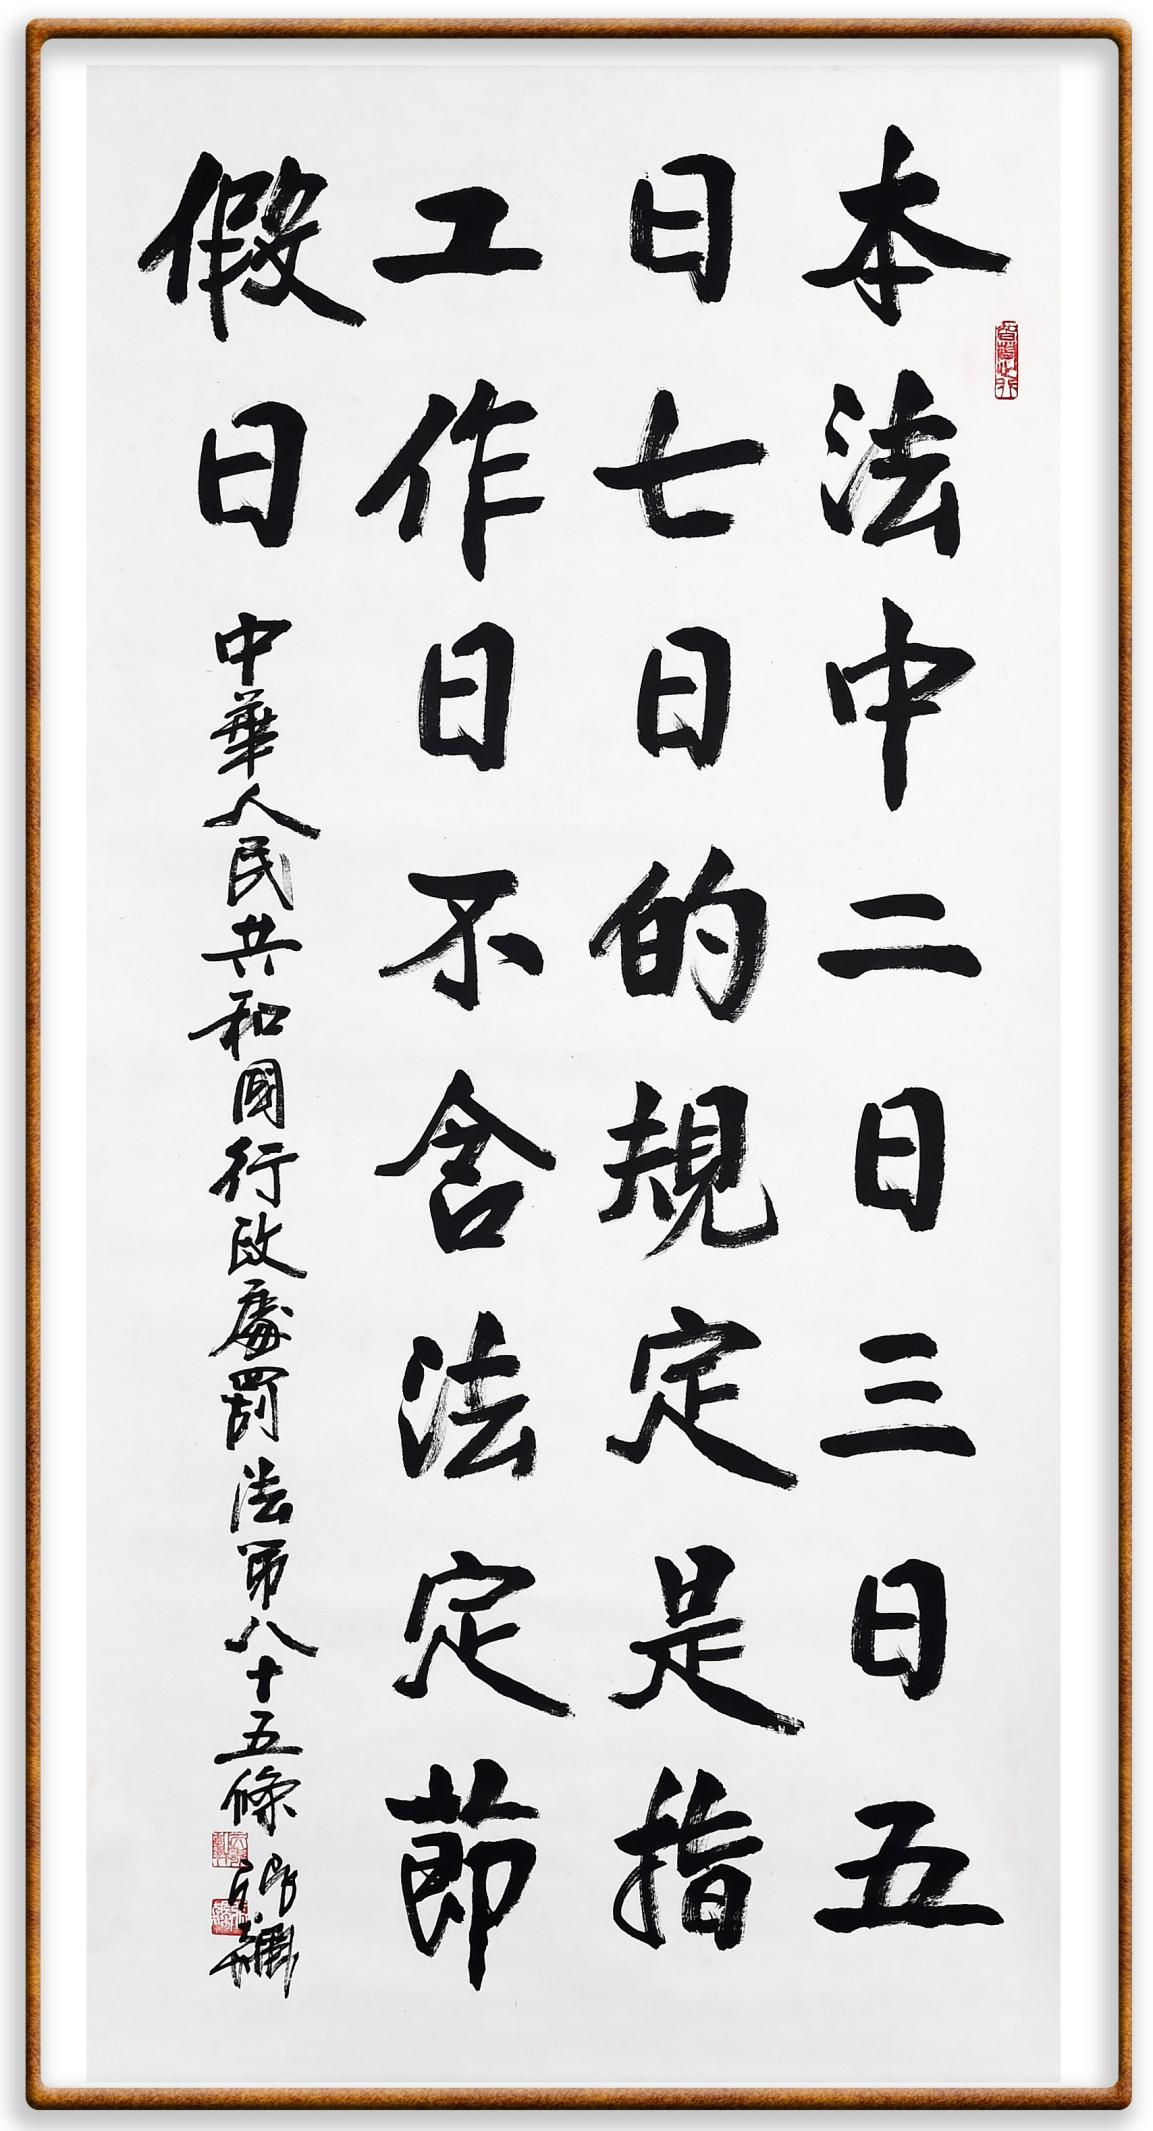 本法中二日三日五
日七日的規定是指
工作日不含法定節
假日
中華人民共和國行政處罰法第八十五條